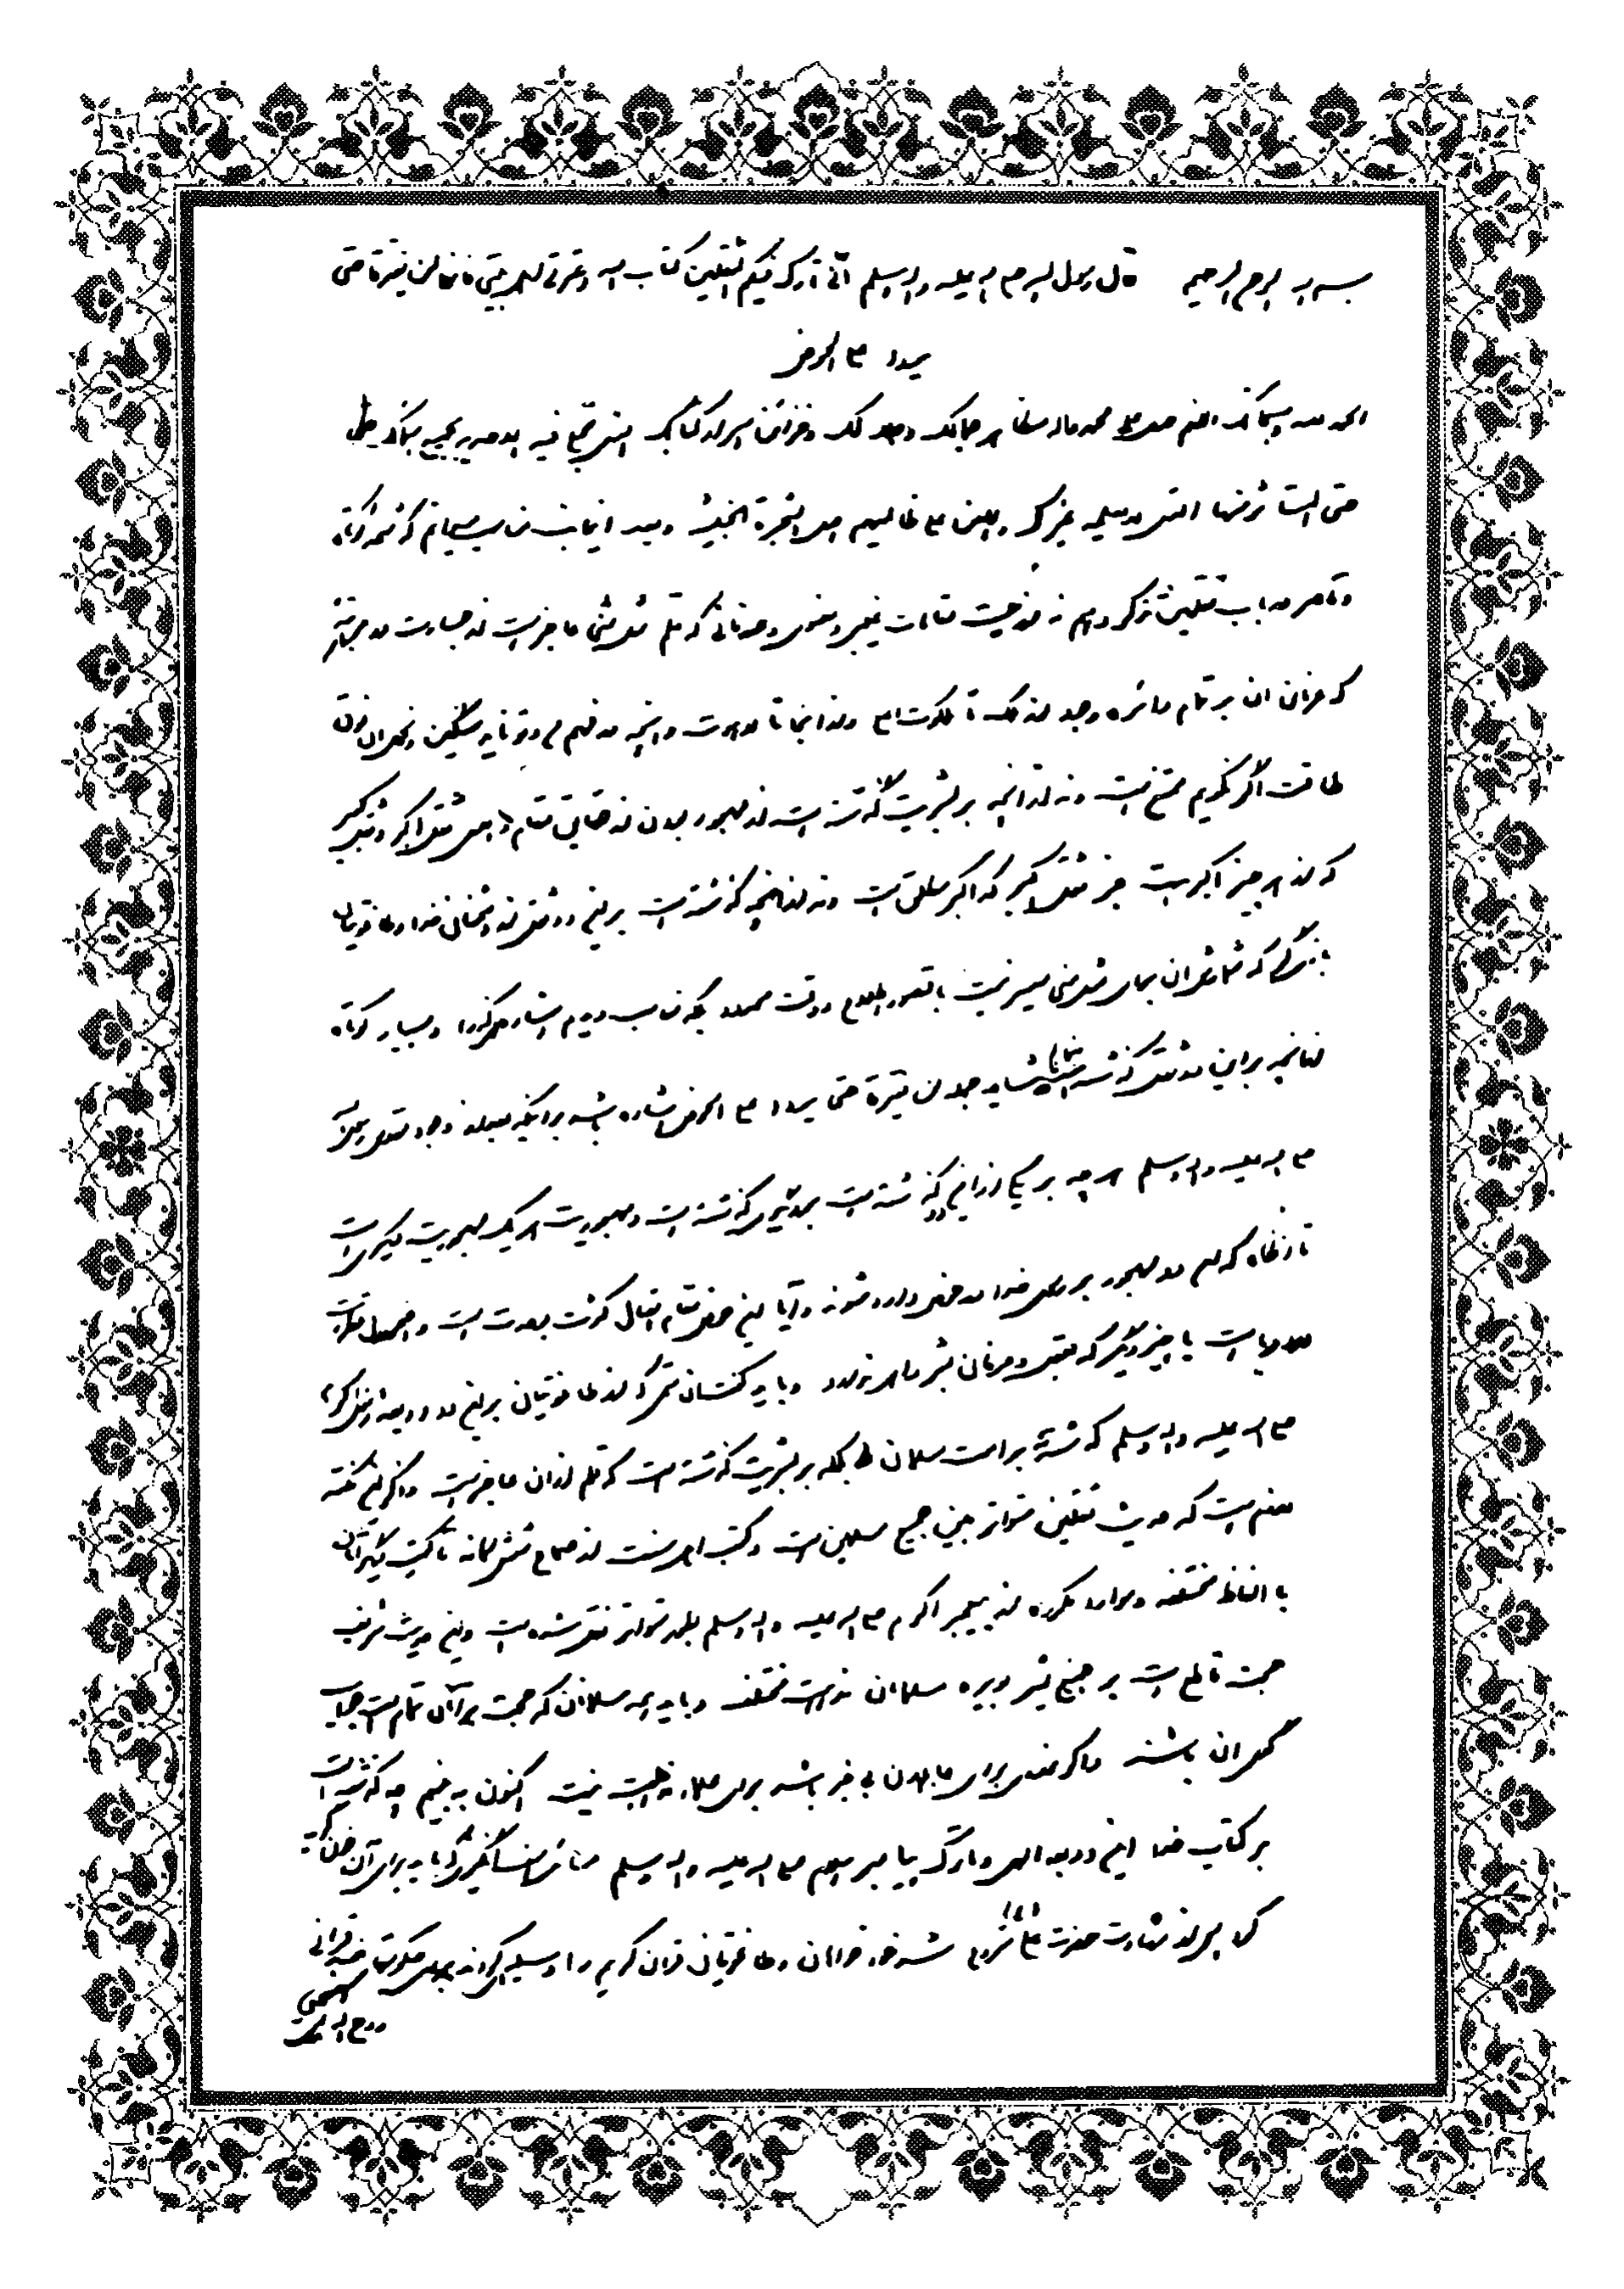 بسم الله الرحمن الرحیم قال رسول الله صلی الله علیه و آله و سلم انّی تارک فیکم الثقلین کتاب الله و عترتی اهل بیتی فانهما لن یفترقا حتی
یردا علی الحوض
الحمد لله و سبحانک اللهم صل علی محمد و آله مظاهر جمالک و جلالک و خزائن اسرار کتابک الذی تجلی فیه الاحدیه بجمیع اسمائک
حتی المستأثر منها الذی لا یعلمه غیرک و اللعن علی ظالمیهم اصل الشجرة الخبیثه و بعد اینجانب مناسب میدانم که شمه‌ای کوتاه
و قاصر در باب ثقلین تذکر دهم نه از حیث مقامات غیبی و معنوی و عرفانی که قلم مثل منی عاجز است از جسارت در مرتبه‌ای
که عرفان آن بر تمام دائره وجود از ملک تا ملکوت اعلی و از آنجا تا لاهوت و آنچه در فهم من و تو ناید سنگین و تحمل آن فوق
طاقت اگر نگویم ممتنع است و نه از آنچه بر بشریت گذشته است از مهجور بودن از حقایق مقام والای ثقل اکبر و ثقل کبیر
که از هر چیز اکبر است جز ثقل اکبر که اکبر مطلق است و نه از آنچه گذشته است بر این دو ثقل از دشمنان خدا و طاغوتیان
بازیگر که شمارش آن برای مثل منی میسر نیست با قصور اطلاع و وقت محدود بلکه مناسب دیدم اشاره‌ای گذرا و بسیار کوتاه
از آنچه بر این دو ثقل گذشته است بنمایم شاید جمله لن یفترقا حتی یردا علی الحوض اشاره باشد بر اینکه بعد از وجود مقدس رسول الله
صلی الله علیه و آله و سلم هر چه بر یکی از این دو گذشته است بر دیگری گذشته است و مهجوریت هر یک مهجوریت دیگری است
تا آنگاه که این دو مهجور بر رسول خدا در حوض وارد شوند و آیا این حوض مقام اتصال کثرت بوحدت است و اضمحلال قطرات
در دریا است یا چیز دیگر که بعقل و عرفان بشر راهی ندارد و باید گفت آن ستمی که از طاغوتیان بر این دو ودیعه رسول اکرم
صلی الله علیه و آله و سلم گذشته بر امت مسلمان بلکه بر بشریت گذشته است که قلم از آن عاجز است و ذکر این نکته
لازم است که حدیث ثقلین متواتر بین جمیع مسلمین است و کتب اهل سنت از صحاح ششگانه تا کتب دیگر آنان
با الفاظ مختلفه و موارد مکرره از پیغمبر اکرم صلی الله علیه و آله و سلم بطور متواتر نقل شده است و این حدیث شریف
حجت قاطع است بر جمیع بشر بویژه مسلمانان مذاهب مختلف و باید همه مسلمانان که حجت بر آنان تمام است جوابگوی
آن باشند و اگر عذری برای جاهلان بی‌خبر باشد برای علماء مذاهب نیست اکنون به بینیم چه گذشته است
بر کتاب خدا این ودیعه الهی و ماترک پیامبر اسلام صلی الله علیه و آله و سلم مسائل اسف‌انگیزی که باید برای آن خون گریه
کرد پس از شهادت حضرت علی (ع) شروع شد خودخواهان و طاغوتیان قرآن کریم را وسیله‌ای کردند برای حکومتهای ضد قرآنی
روح الله الموسوی الخمینی